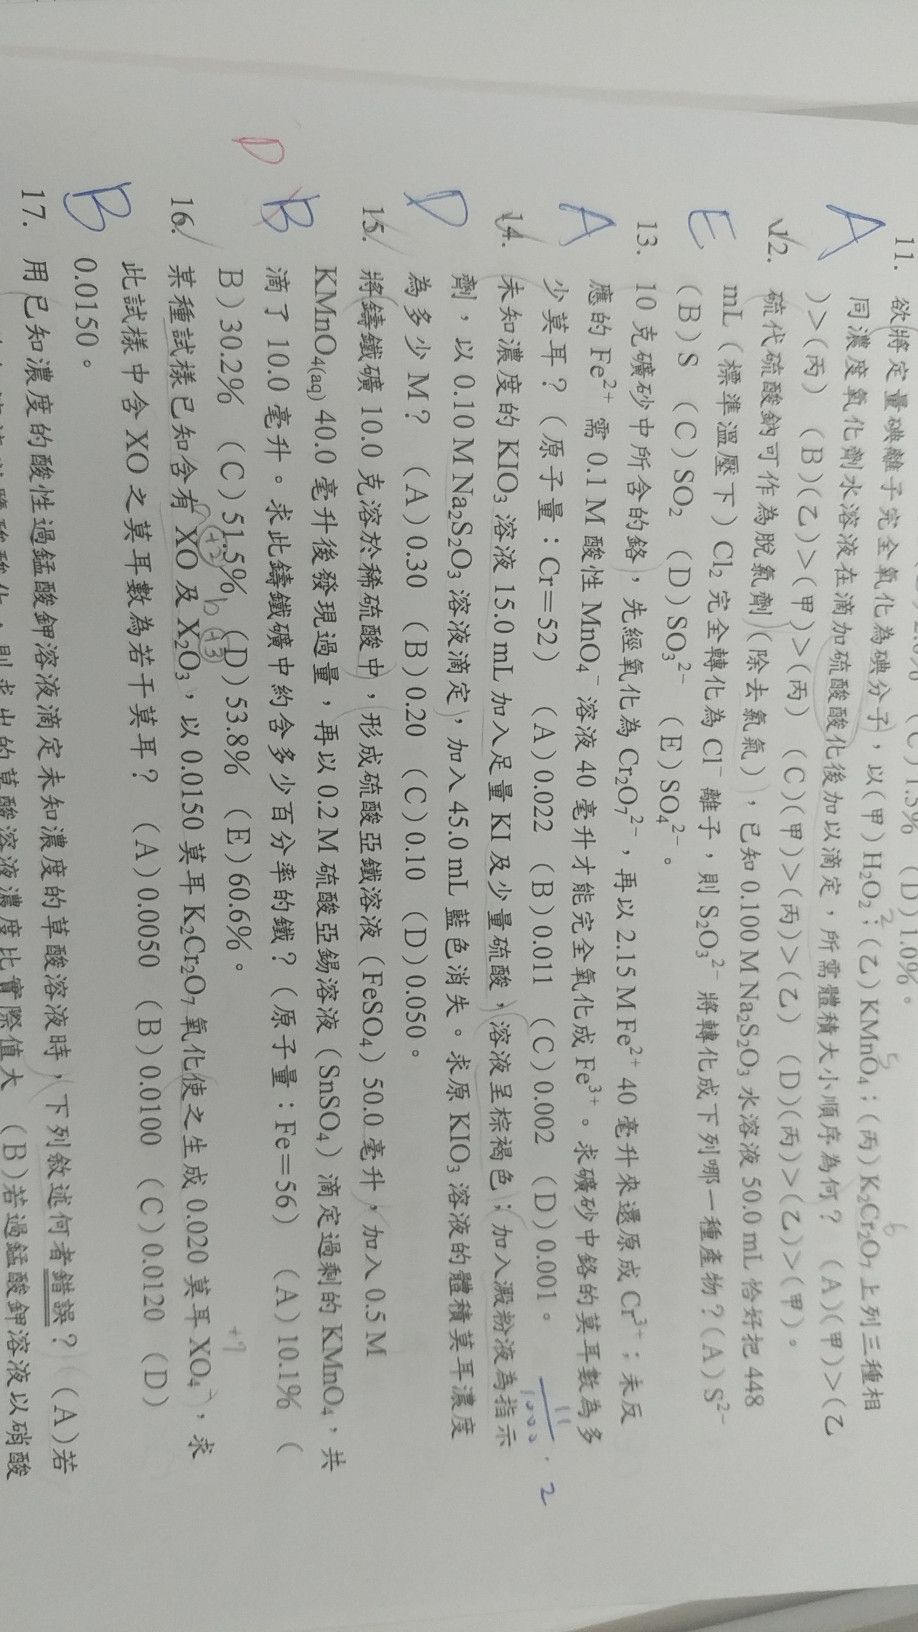 (C) 1.3% (D) 1.0%。
11. 欲將定量碘離子完全氧化為碘分子，以(甲) H₂O₂；(乙) KMnO₄；(丙) K₂Cr₂O₇ 上列三種相
2 5 6
同濃度氧化劑水溶液在滴加硫酸酸化後加以滴定，所需體積大小順序為何？ (A)(甲)＞(乙
A )＞(丙) (B)(乙)＞(甲)＞(丙) (C)(甲)＞(丙)＞(乙) (D)(丙)＞(乙)＞(甲)。
12. 硫代硫酸鈉可作為脫氯劑(除去氯氣)，已知 0.100 M Na₂S₂O₃ 水溶液 50.0 mL 恰好把 448
mL（標準溫壓下）Cl₂ 完全轉化為 Cl⁻ 離子，則 S₂O₃²⁻ 將轉化成下列哪一種產物？(A) S²⁻
E (B) S (C) SO₂ (D) SO₃²⁻ (E) SO₄²⁻。
13. 10 克礦砂中所含的鉻，先經氧化為 Cr₂O₇²⁻，再以 2.15 M Fe²⁺ 40 毫升來還原成 Cr³⁺；未反
應的 Fe²⁺ 需 0.1 M 酸性 MnO₄⁻ 溶液 40 毫升才能完全氧化成 Fe³⁺。求礦砂中鉻的莫耳數為多
A 少莫耳？（原子量：Cr＝52） (A) 0.022 (B) 0.011 (C) 0.002 (D) 0.001。
11/1000 · 2
14. 未知濃度的 KIO₃ 溶液 15.0 mL 加入足量 KI 及少量硫酸，溶液呈棕褐色；加入澱粉液為指示
劑，以 0.10 M Na₂S₂O₃ 溶液滴定，加入 45.0 mL 藍色消失。求原 KIO₃ 溶液的體積莫耳濃度
D 為多少 M？ (A) 0.30 (B) 0.20 (C) 0.10 (D) 0.050。
15. 將鑄鐵礦 10.0 克溶於稀硫酸中，形成硫酸亞鐵溶液（FeSO₄）50.0 毫升，加入 0.5 M
KMnO₄₍aq₎ 40.0 毫升後發現過量，再以 0.2 M 硫酸亞錫溶液（SnSO₄）滴定過剩的 KMnO₄，共
B 滴了 10.0 毫升。求此鑄鐵礦中約含多少百分率的鐵？（原子量：Fe＝56） (A) 10.1% (
D B) 30.2% (C) 51.5% (D) 53.8% (E) 60.6%。
+2 +3 +7
16. 某種試樣已知含有 XO 及 X₂O₃，以 0.0150 莫耳 K₂Cr₂O₇ 氧化使之生成 0.020 莫耳 XO₄⁻，求
此試樣中含 XO 之莫耳數為若干莫耳？ (A) 0.0050 (B) 0.0100 (C) 0.0120 (D)
B 0.0150。
17. 用已知濃度的酸性過錳酸鉀溶液滴定未知濃度的草酸溶液時，下列敘述何者錯誤？ (A) 若
則求出的草酸溶液濃度比實際值大 (B) 若過錳酸鉀溶液以硝酸